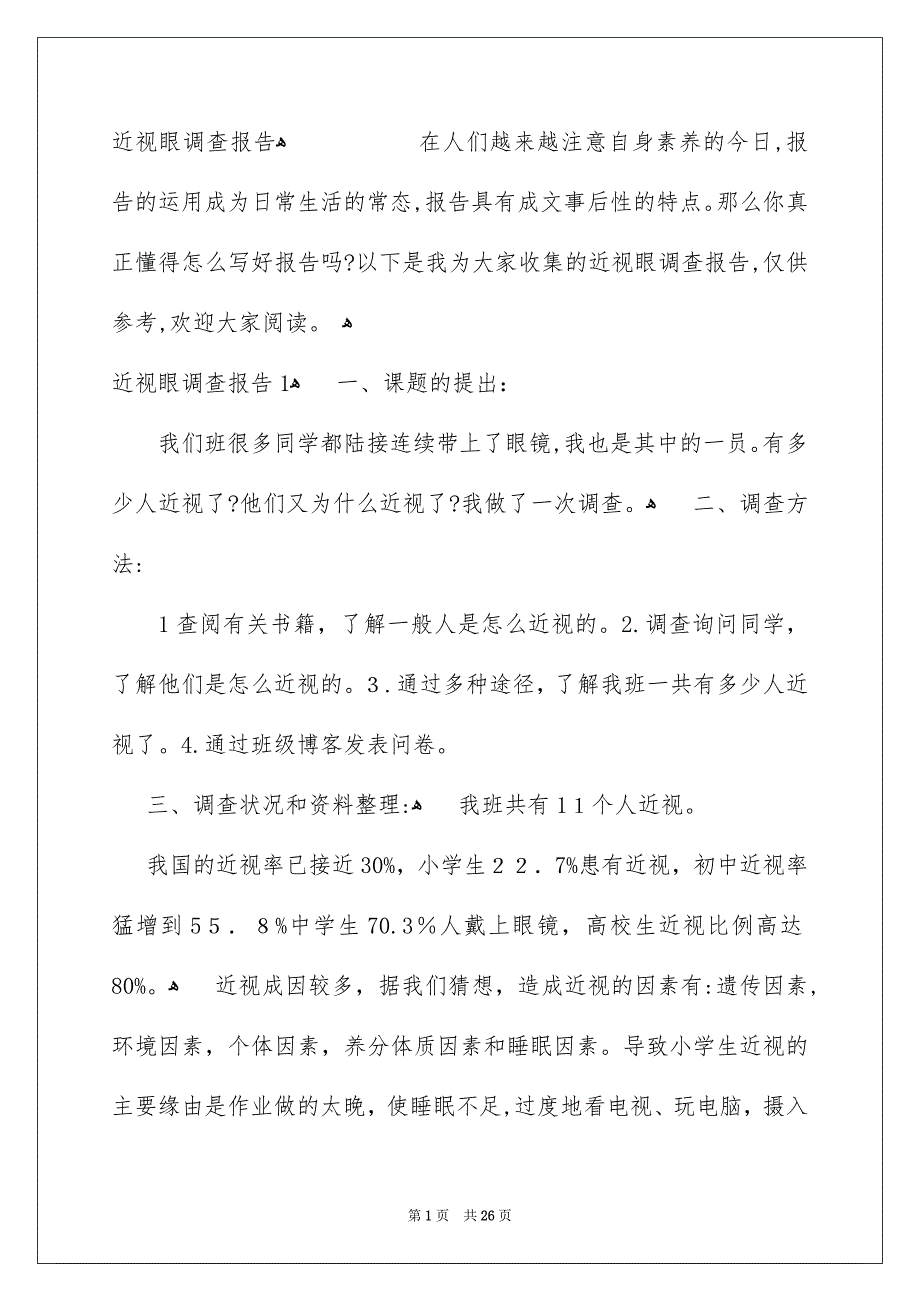 近视眼调查报告ﻩ 在人们越来越注意自身素养的今日,报
告的运用成为日常生活的常态,报告具有成文事后性的特点。那么你真
正懂得怎么写好报告吗?以下是我为大家收集的近视眼调查报告,仅供
参考,欢迎大家阅读。 ﻩ
近视眼调查报告1ﻩ 一、课题的提出:
我们班很多同学都陆接连续带上了眼镜,我也是其中的一员。有多
少人近视了?他们又为什么近视了?我做了一次调查。ﻩ 二、调查方
法:
1查阅有关书籍，了解一般人是怎么近视的。2.调查询问同学，
了解他们是怎么近视的。３.通过多种途径，了解我班一共有多少人近
视了。4.通过班级博客发表问卷。
三、调查状况和资料整理:ﻩ 我班共有１１个人近视。
我国的近视率已接近30%，小学生２２．7%患有近视，初中近视率
猛增到５５．８%中学生70.3％人戴上眼镜，高校生近视比例高达
80%。ﻩ 近视成因较多，据我们猜想，造成近视的因素有:遗传因素,
环境因素，个体因素，养分体质因素和睡眠因素。导致小学生近视的
主要缘由是作业做的太晚，使睡眠不足,过度地看电视、玩电脑，摄入
第1页 共26页